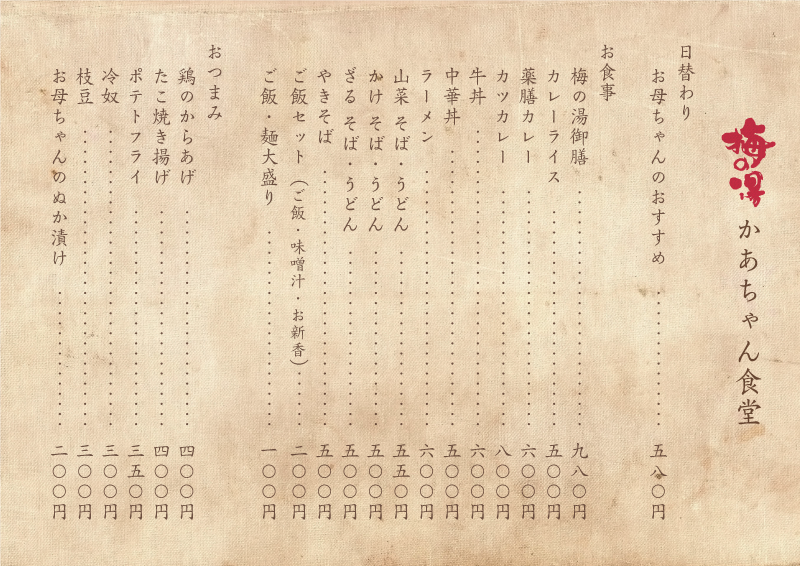 梅の湯 かあちゃん食堂
日替わり
お母ちゃんのおすすめ 五八〇円
お食事
梅の湯御膳 九八〇円
カレーライス 五〇〇円
薬膳カレー 六〇〇円
カツカレー 八〇〇円
牛丼 六〇〇円
中華丼 五〇〇円
ラーメン 六〇〇円
山菜 そば・うどん 五五〇円
かけ そば・うどん 五〇〇円
ざる そば・うどん 五〇〇円
やきそば 五〇〇円
ご飯セット（ご飯・味噌汁・お新香） 二〇〇円
ご飯・麺大盛り 一〇〇円
おつまみ
鶏のからあげ 四〇〇円
たこ焼き揚げ 四〇〇円
ポテトフライ 三五〇円
冷奴 三〇〇円
枝豆 三〇〇円
お母ちゃんのぬか漬け 二〇〇円